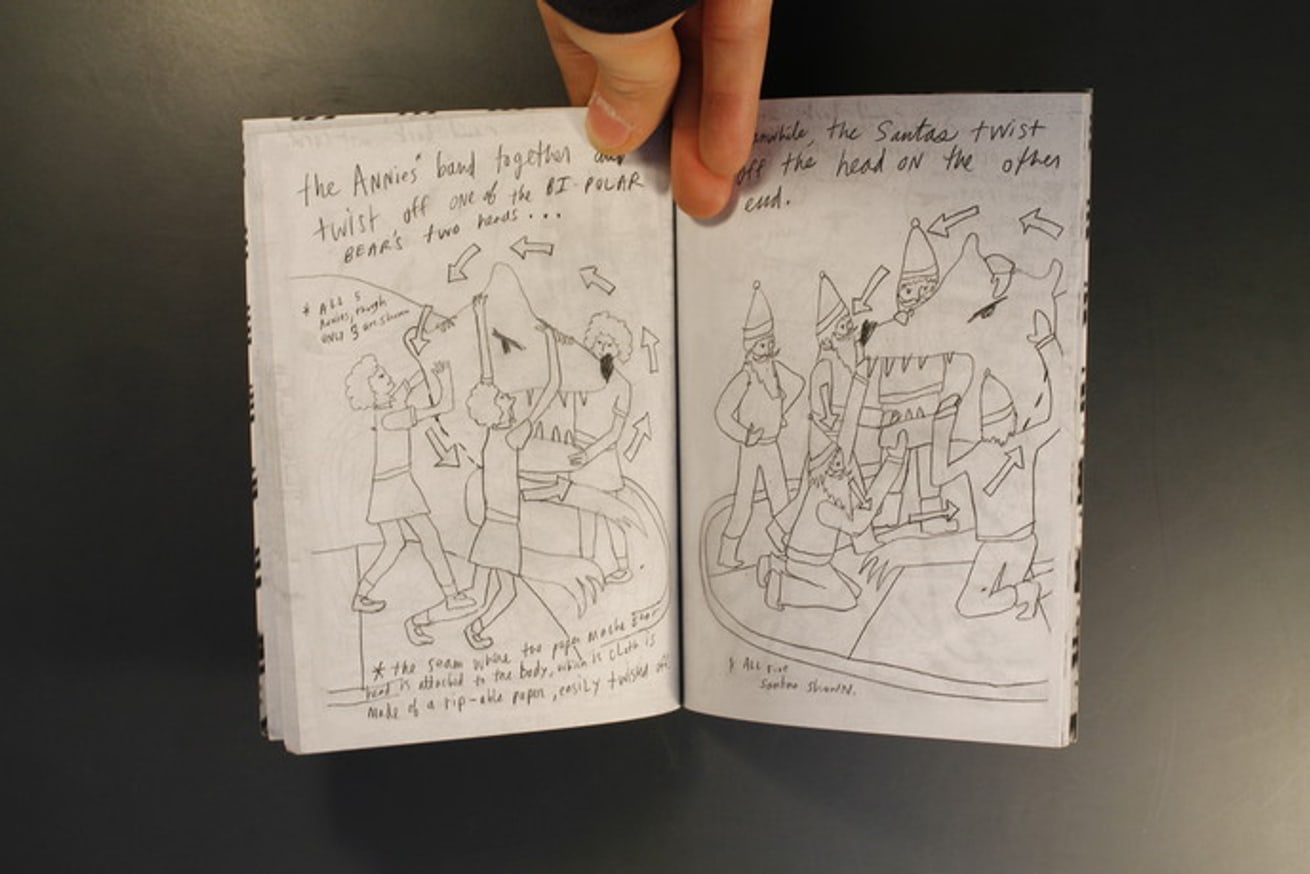 the ANNIES' band together and
twist off ONE of the BI-POLAR
BEAR'S two heads...
* ALL 5
Annies, though
ONLY 3 are shown
* the seam where the paper mache Bear
head is attached to the body, which is cloth is
made of a rip-able paper, easily twisted off!
the Santas twist
off the head ON the other
end.
* ALL five
Santas shown.